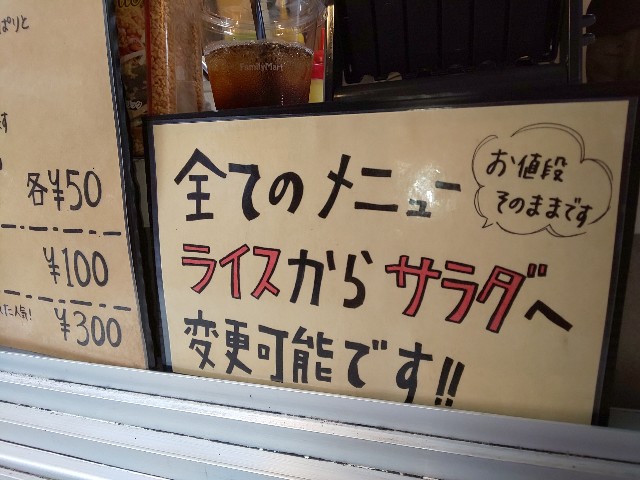 ぱりと
す
各¥50
¥100
¥300
FamilyMart
全てのメニュー
お値段
そのままです
ライスからサラダへ
変更可能です!!